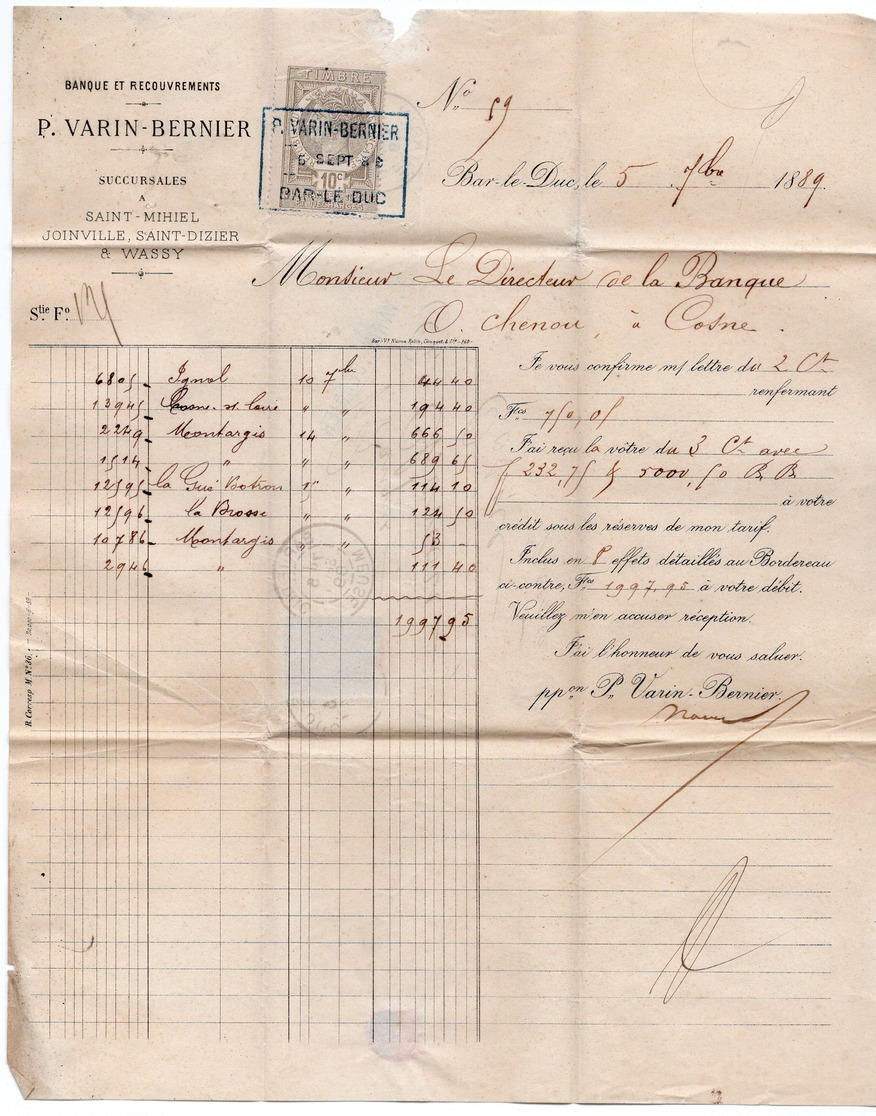 BANQUE ET RECOUVREMENTS
P. VARIN-BERNIER
SUCCURSALES
A
SAINT-MIHIEL
JOINVILLE, SAINT-DIZIER
& WASSY
Stie Fo
TIMBRE
P. VARIN-BERNIER
5 SEPT
10c
BAR-LE-DUC
No 59
Bar-le-Duc, le 5 7bre 1889.
Monsieur Le Directeur de la Banque
O. Chenou, à Cosne.
6805 Ignol 10 7bre 44 40
13945 Cosne s/ Loire " " 194 40
2249 Montargis 14 " 666 50
1514 " " 689 65
12595 la Gué Botron 15 " 114 10
12596 la Brosse " " 124 50
10786 Montargis " " 53 -
2946 " 111 40
1997 95
Je vous confirme m/ lettre du 2 Ct
renfermant
Fcs 750,05
J'ai reçu la vôtre du 3 Ct avec
f 232,75 & 5000,50 B B
à votre
crédit sous les réserves de mon tarif.
Inclus en 8 effets détaillés au Bordereau
ci-contre, Fcs 1997,95 à votre débit.
Veuillez m'en accuser réception.
J'ai l'honneur de vous saluer.
ppon P. Varin-Bernier.
MEUSE
B. Corresp M. No 86.